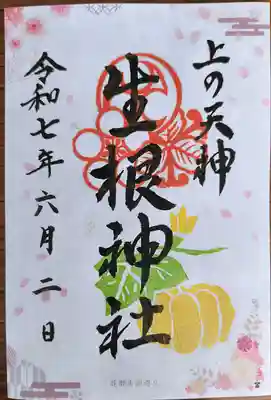 上の天神
生根神社
令和七年六月二日